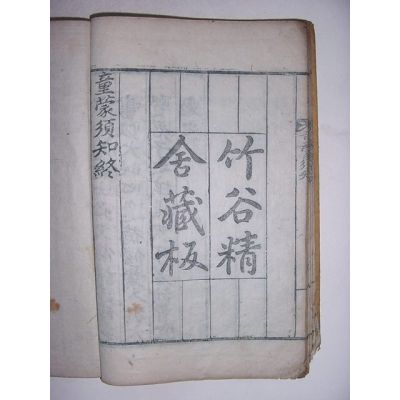 竹谷精
舍藏板
童蒙須知終